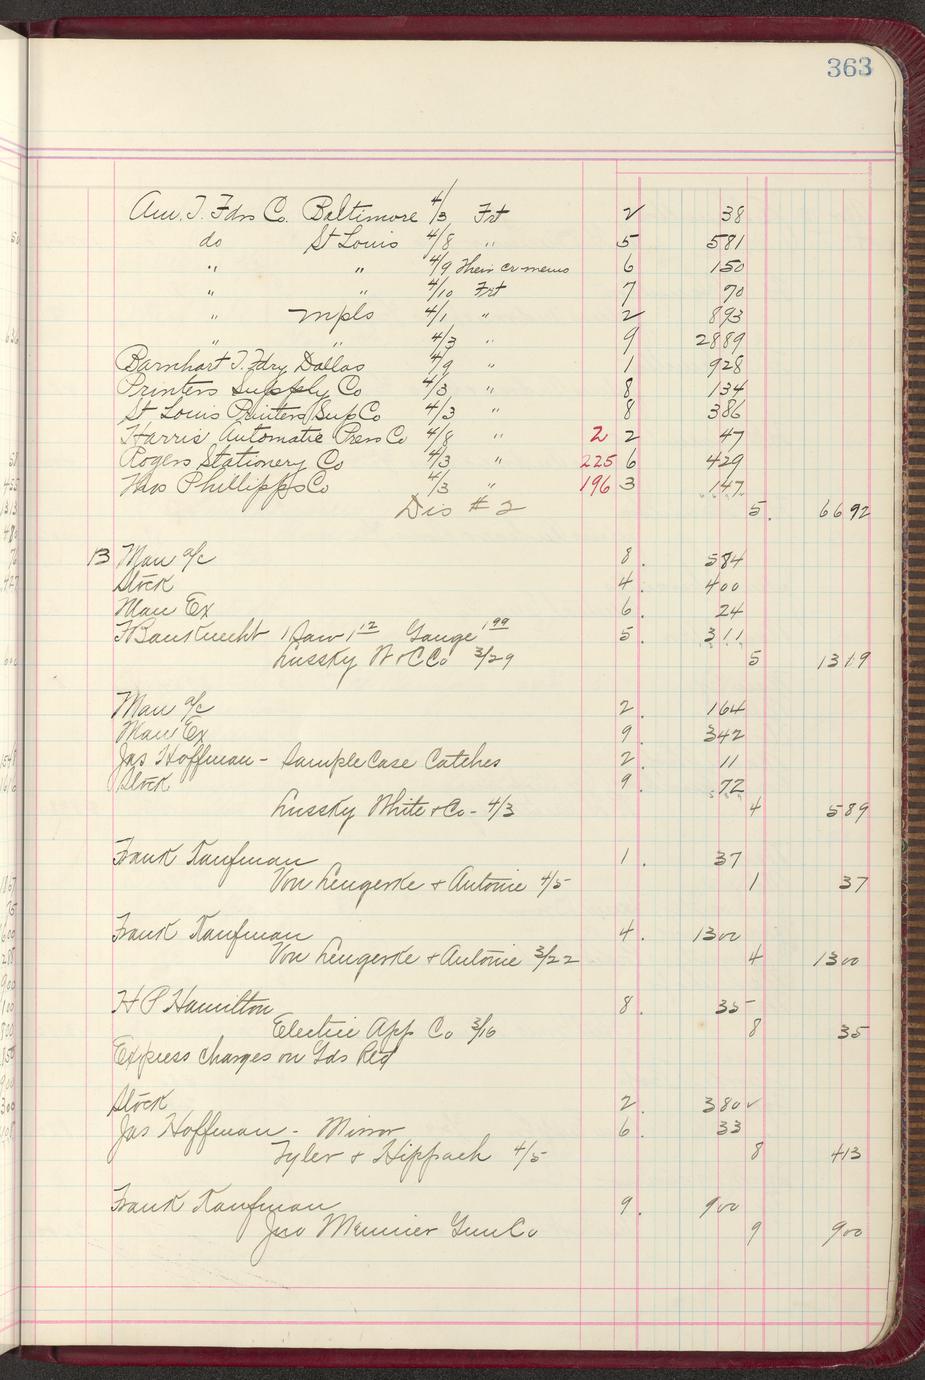 363
Am. T. Fdrs Co. Baltimore 4/3 Frt 2 38
do St Louis 4/8 " 5 581
" " 4/9 Their cr memo 6 150
" " 4/10 Frt 7 70
" Mpls 4/1 " 2 893
" " 4/3 " 9 2889
Barnhart T. Fdry Dallas 4/9 " 1 928
Printers Supply Co 4/3 " 8 134
St Louis Printers Sup Co 4/3 " 8 386
Harris Automatic Press Co 4/8 " 2 2 47
Rogers Stationery Co 4/3 " 225 6 429
Phillipps Co 4/3 " 196 3 147
Dis # 2 5. 6692
13 Man a/c 8. 584
Stock 4. 400
Man Ex 6. 24
F Bauknecht 1 Saw 1 12 Gauge 1 99 5. 311
Lussky W & C Co 3/29 5 1319
Man a/c 2. 164
Man Ex 9. 342
Jas Hoffman - Sample Case Catches 2. 11
Stock 9. 72
Lussky White & Co - 4/3 4 589
Frank Kaufman 1. 37
Von Lengerke & Antoine 4/5 1 37
Frank Kaufman 4. 1300
Von Lengerke & Antoine 3/22 4 1300
H P Hamilton 8. 35
Electric App Co 3/16 8 35
Express charges on Gds Retd
Stock 2. 380
Jas Hoffman - Mirror 6. 33
Tyler & Hippach 4/5 8 413
Frank Kaufman 9. 900
Jno Meunier Gun Co 9 900